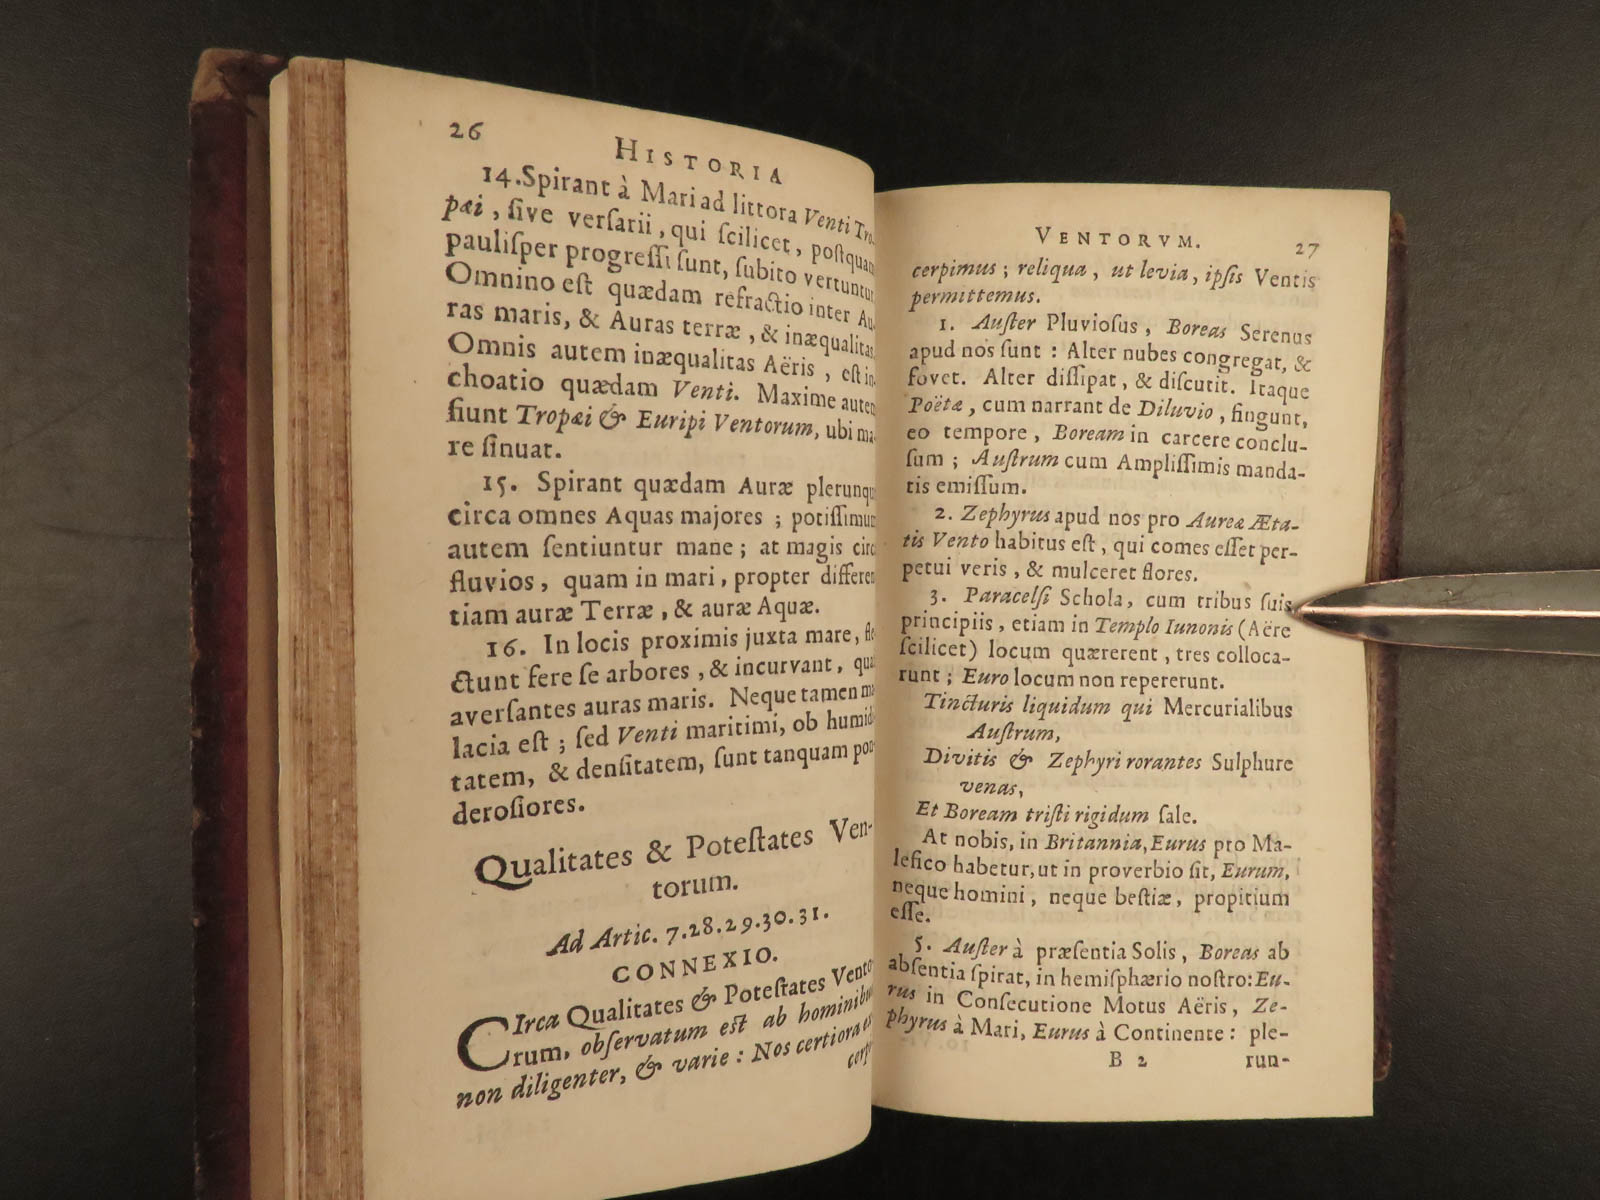 26
HISTORIA
14. Spirant à Mari ad littora Venti Tro-
pæi, ſive verſarii, qui ſcilicet, poſtquam
pauliſper progreſſi ſunt, ſubito vertuntur.
Omnino eſt quædam refractio inter Au-
ras maris, & Auras terræ, & inæqualitas.
Omnis autem inæqualitas Aëris, eſt in-
choatio quædam Venti. Maxime autem
fiunt Tropæi & Euripi Ventorum, ubi ma-
re ſinuat.
15. Spirant quædam Auræ plerunque
circa omnes Aquas majores; potiſſimum
autem ſentiuntur mane; at magis circa
fluvios, quam in mari, propter differen-
tiam auræ Terræ, & auræ Aquæ.
16. In locis proximis juxta mare, fle-
ctunt fere ſe arbores, & incurvant, quaſi
averſantes auras maris. Neque tamen ma-
lacia eſt; ſed Venti maritimi, ob humidi-
tatem, & denſitatem, ſunt tanquam pon-
deroſiores.
Qualitates & Poteſtates Ven-
torum.
Ad Artic. 7.28.29.30.31.
CONNEXIO.
CIrca Qualitates & Poteſtates Vento-
rum, obſervatum eſt ab hominibus
non diligenter, & varie: Nos certiora ex-
cerpi-
VENTORVM.
27
cerpimus; reliqua, ut levia, ipſis Ventis
permittemus.
1. Auſter Pluvioſus, Boreas Serenus
apud nos ſunt: Alter nubes congregat, &
fovet. Alter diſſipat, & diſcutit. Itaque
Poëtæ, cum narrant de Diluvio, fingunt,
eo tempore, Boream in carcere conclu-
ſum; Auſtrum cum Ampliſſimis manda-
tis emiſſum.
2. Zephyrus apud nos pro Aureæ Æta-
tis Vento habitus eſt, qui comes eſſet per-
petui veris, & mulceret flores.
3. Paracelſi Schola, cum tribus ſuis
principiis, etiam in Templo Iunonis (Aëre
ſcilicet) locum quærerent, tres colloca-
runt; Euro locum non repererunt.
Tincturis liquidum qui Mercurialibus
Auſtrum,
Divitis & Zephyri rorantes Sulphure
venas,
Et Boream triſti rigidum ſale.
At nobis, in Britannia, Eurus pro Ma-
lefico habetur, ut in proverbio ſit, Eurum,
neque homini, neque beſtiæ, propitium
eſſe.
5. Auſter à præſentia Solis, Boreas ab
abſentia ſpirat, in hemiſphærio noſtro: Eu-
rus in Conſecutione Motus Aëris, Ze-
phyrus à Mari, Eurus à Continente: ple-
B 2
run-